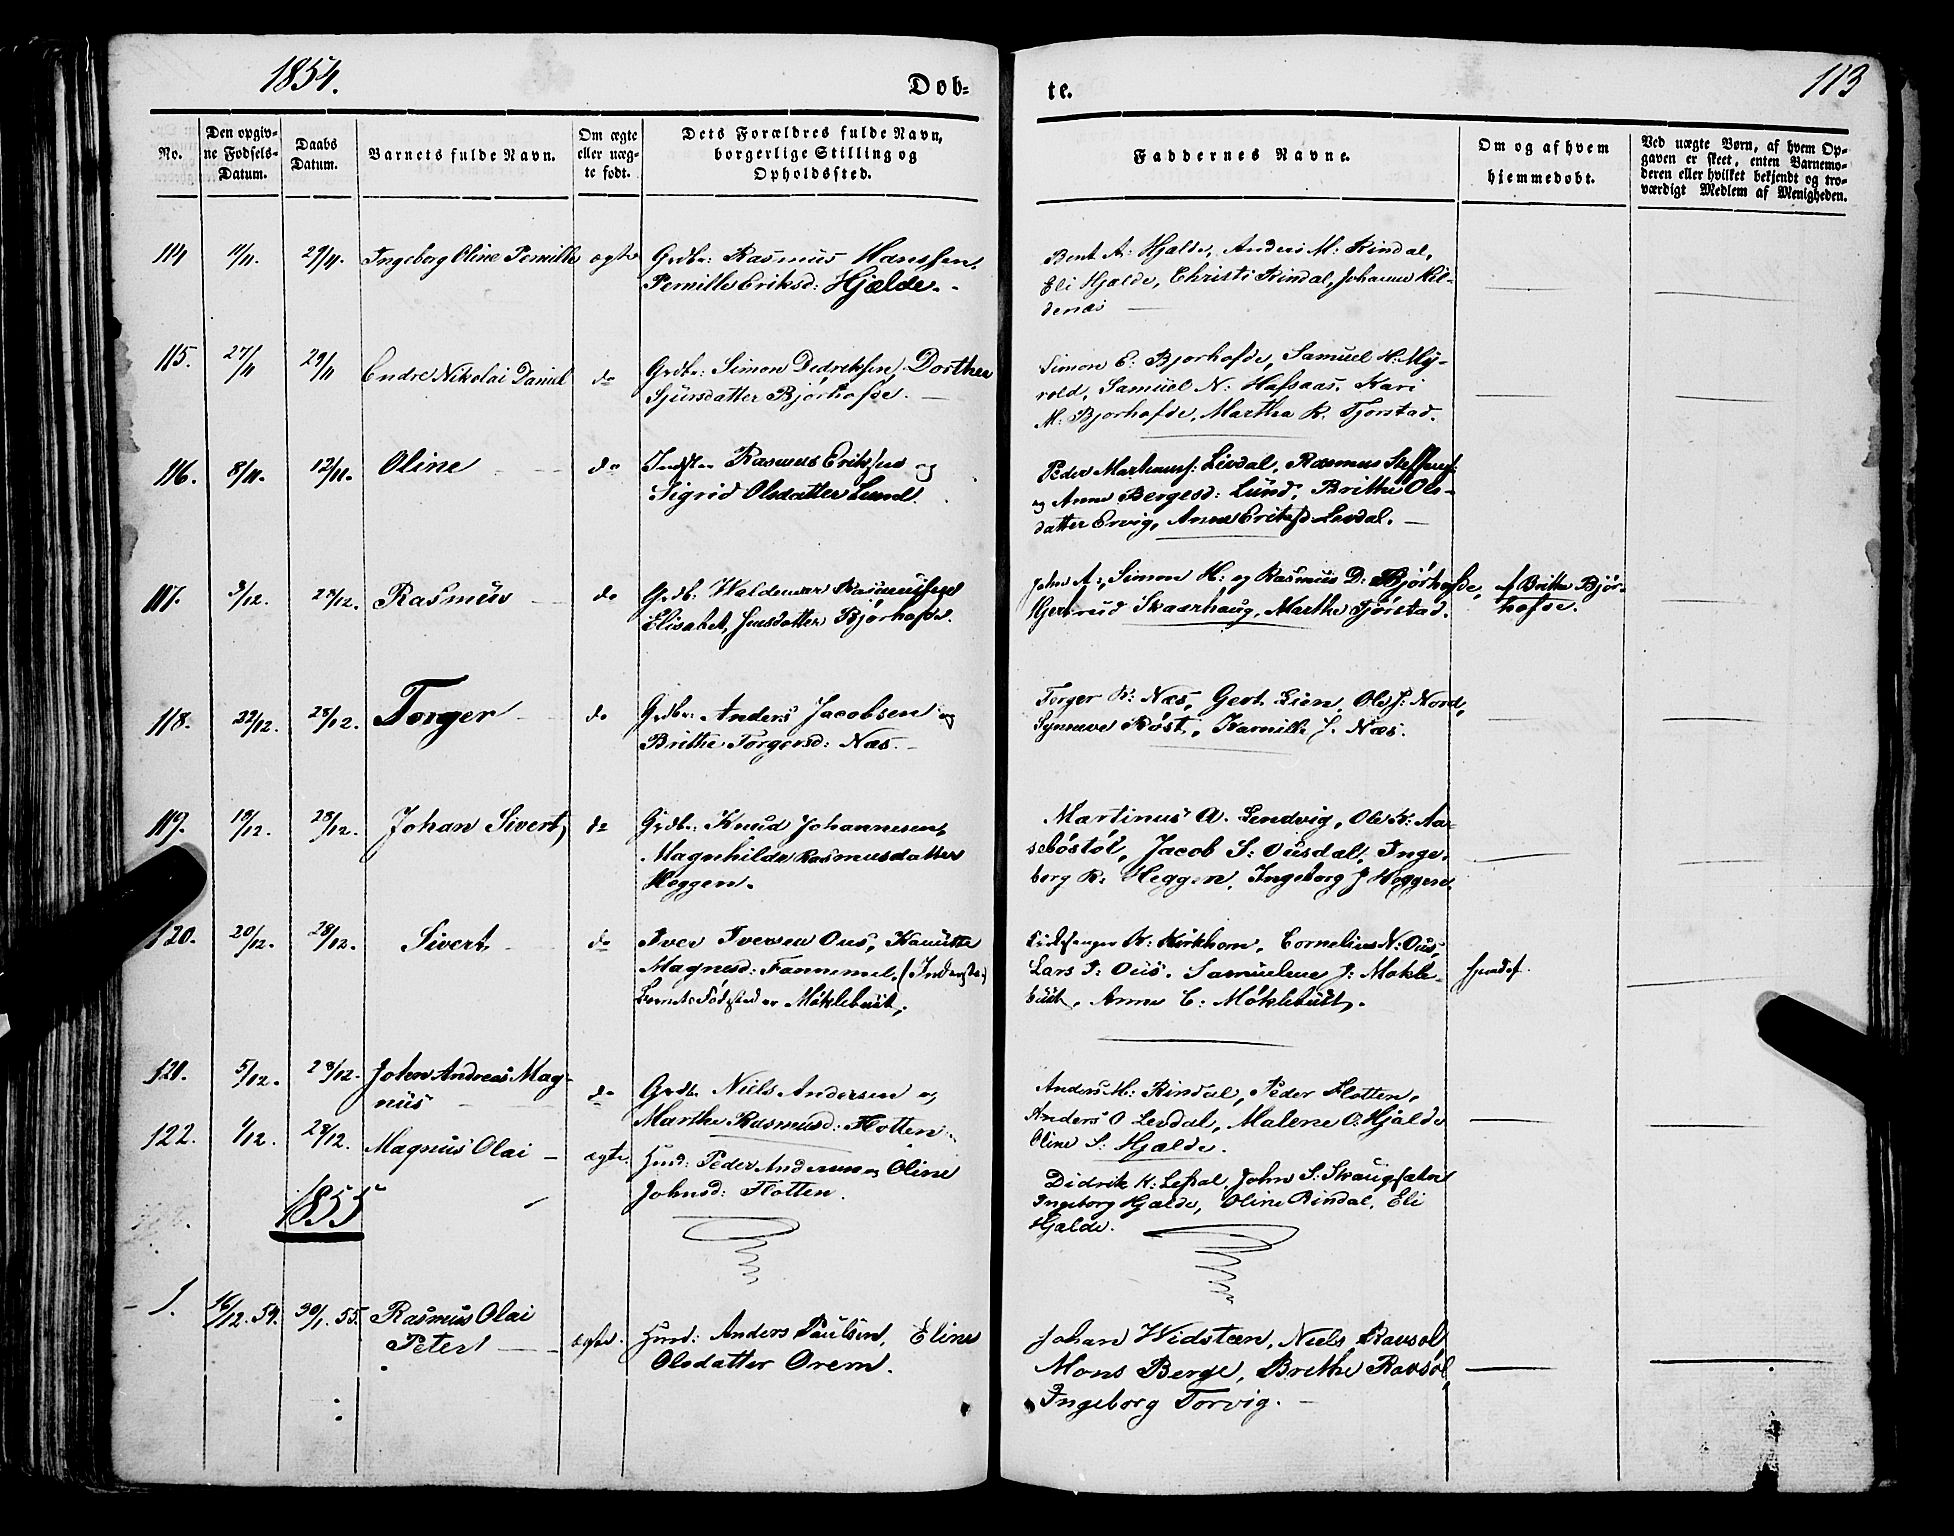 1854.
Døb-
te.
113
No.
Den opgiv-
ne Fødsels-
Datum.
Daabs
Datum.
Barnets fulde Navn.
Om ægte
eller uæg-
te født.
Dets Forældres fulde Navn,
borgerlige Stilling og
Opholdssted.
Faddernes Navne.
Om og af hvem
hjemmedøbt.
Ved uægte Børn, af hvem Op-
gaven er skeet, enten Barnemo-
deren eller hvilket bekjendt og tro-
værdigt Medlem af Menigheden.
114 11/11. 29/11. Ingeborg Oline Pernille ægte Grdbr: Rasmus Hanssen,
Pernille Eriksd: Hjelde.
Bent A: Hjelde, Anders M: Rindal,
Eli Hjelde, Christi Rindal, Johanne
115. 27/11 29/11 Endre Nikolai Daniel do Grdbr: Simon Didriksen, Dorthea
Sjursdatter Bjørhofde.
Simon E: Bjørhofde, Samuel H: My-
rold, Samuel N: Hafsaas, Kari
M: Bjørhofde, Marthea R. Tjørstad.
116. 8/11. 12/11. Oline do Indste Rasmus Eriksen og
Sigrid Olsdatter Lund.
Peder Levdal, Rasmus
og Anne Bergesd: Lund, Brithe Ols-
datter Ervig, Anne Eriksd Levdal.
117. 3/12. 28/12. Rasmus do Grdb: Waldemar Rasmussen
Elisabet Jensdatter Bjørhofde.
John A:, Simon H: og Rasmus D: Bjørhofde,
Gjertrud Skaarhaug, Marthe Tjørstad.
af Brithe Bjør-
hofde.
118. 22/12. 28/12. Torger do Grdbr: Anders Jacobsen og
Brithe Torgersd: Næs.
Torger K: Næs, Gert Lien, Ole J: Nord,
Synneve Røst, Pernille J. Næs.
119. 19/12. 28/12. Johan Sivert, do Grdbr: Knud Johannesen,
Magnhilde Rasmusdatter
Heggen.
Martinus A. Sendvig, Ole K: Aar-
sebøstøl, Jacob S: Ousdal, Inge-
borg R: Heggen, Ingeborg J Heggen.
120. 20/12. 28/12. Sivert do Iver Iversen Ous,
Magnesd: Fannemel, (Inderste)
Barnets Fødested er Møklebust.
K: Kirkhorn, Cornelius N: Ous,
Lars I: Ous, J: Møkle-
bust, Anne C: Møklebust.
121. 5/12. 28/12. John Andreas Mag-
nus do Grdb. Niels Andersen og
Marthe Rasmusd: Flotten.
Anders M: Rindal, Peder Flotten,
Anders O Levdal, Malene O: Hjelde
Oline S: Hjelde.
122. 1/12. 28/12. Magnus Olai ægte. Husd: Peder Andersen og Oline
Johnsd: Flotten.
Didrik K:
Ingeborg Hjelde, Oline Rindal, Eli
Hjelde.
1855
1. 16/12. 54. 30/1. 55. Rasmus Olai
Peter ægte. Husd: Anders Paulsen, Eline
Olsdatter Orem.
Johan Widsteen, Niels Ravsøl,
Mons Berge, Brithe Ravsøl,
Ingeborg Torvig.